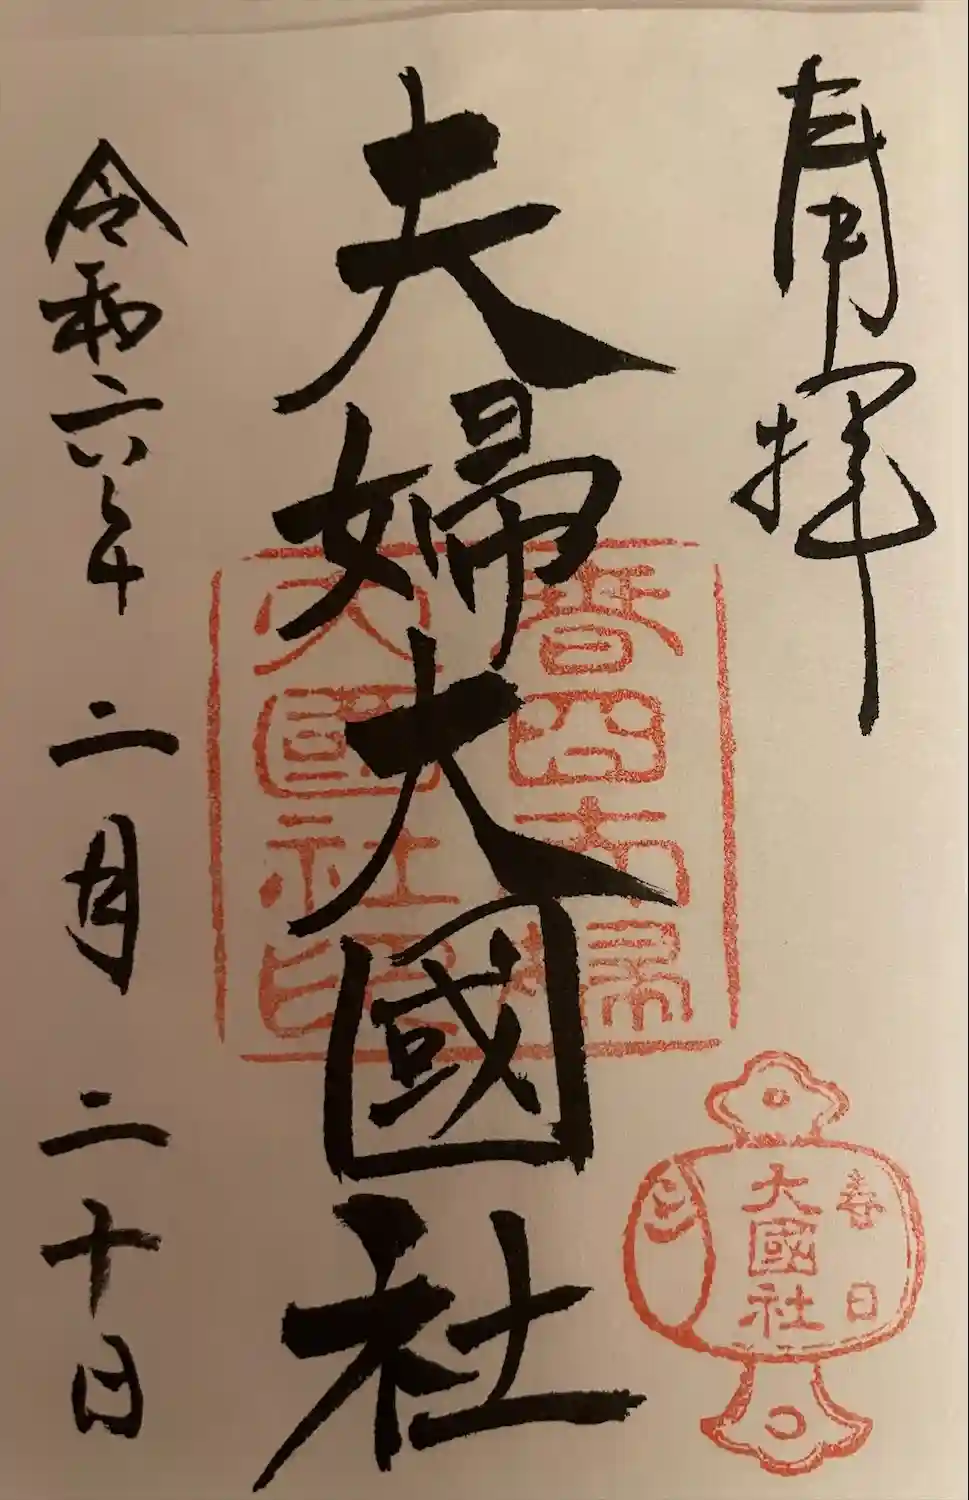 奉拝
夫婦大國社
令和六年 二月 二十日
大國社印
春日
大國社